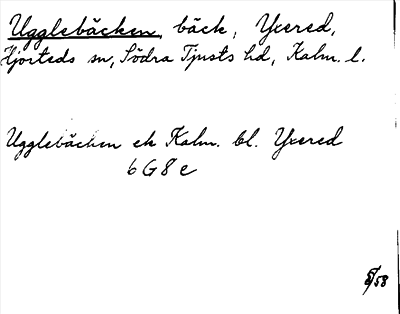 Ugglebäcken, bäck, Yxered,
Hjorteds sn, Södra Tjusts hd, Kalm. l.
Ugglebäcken ek Kalm. bl. Yxered
6 G 8 e
/58